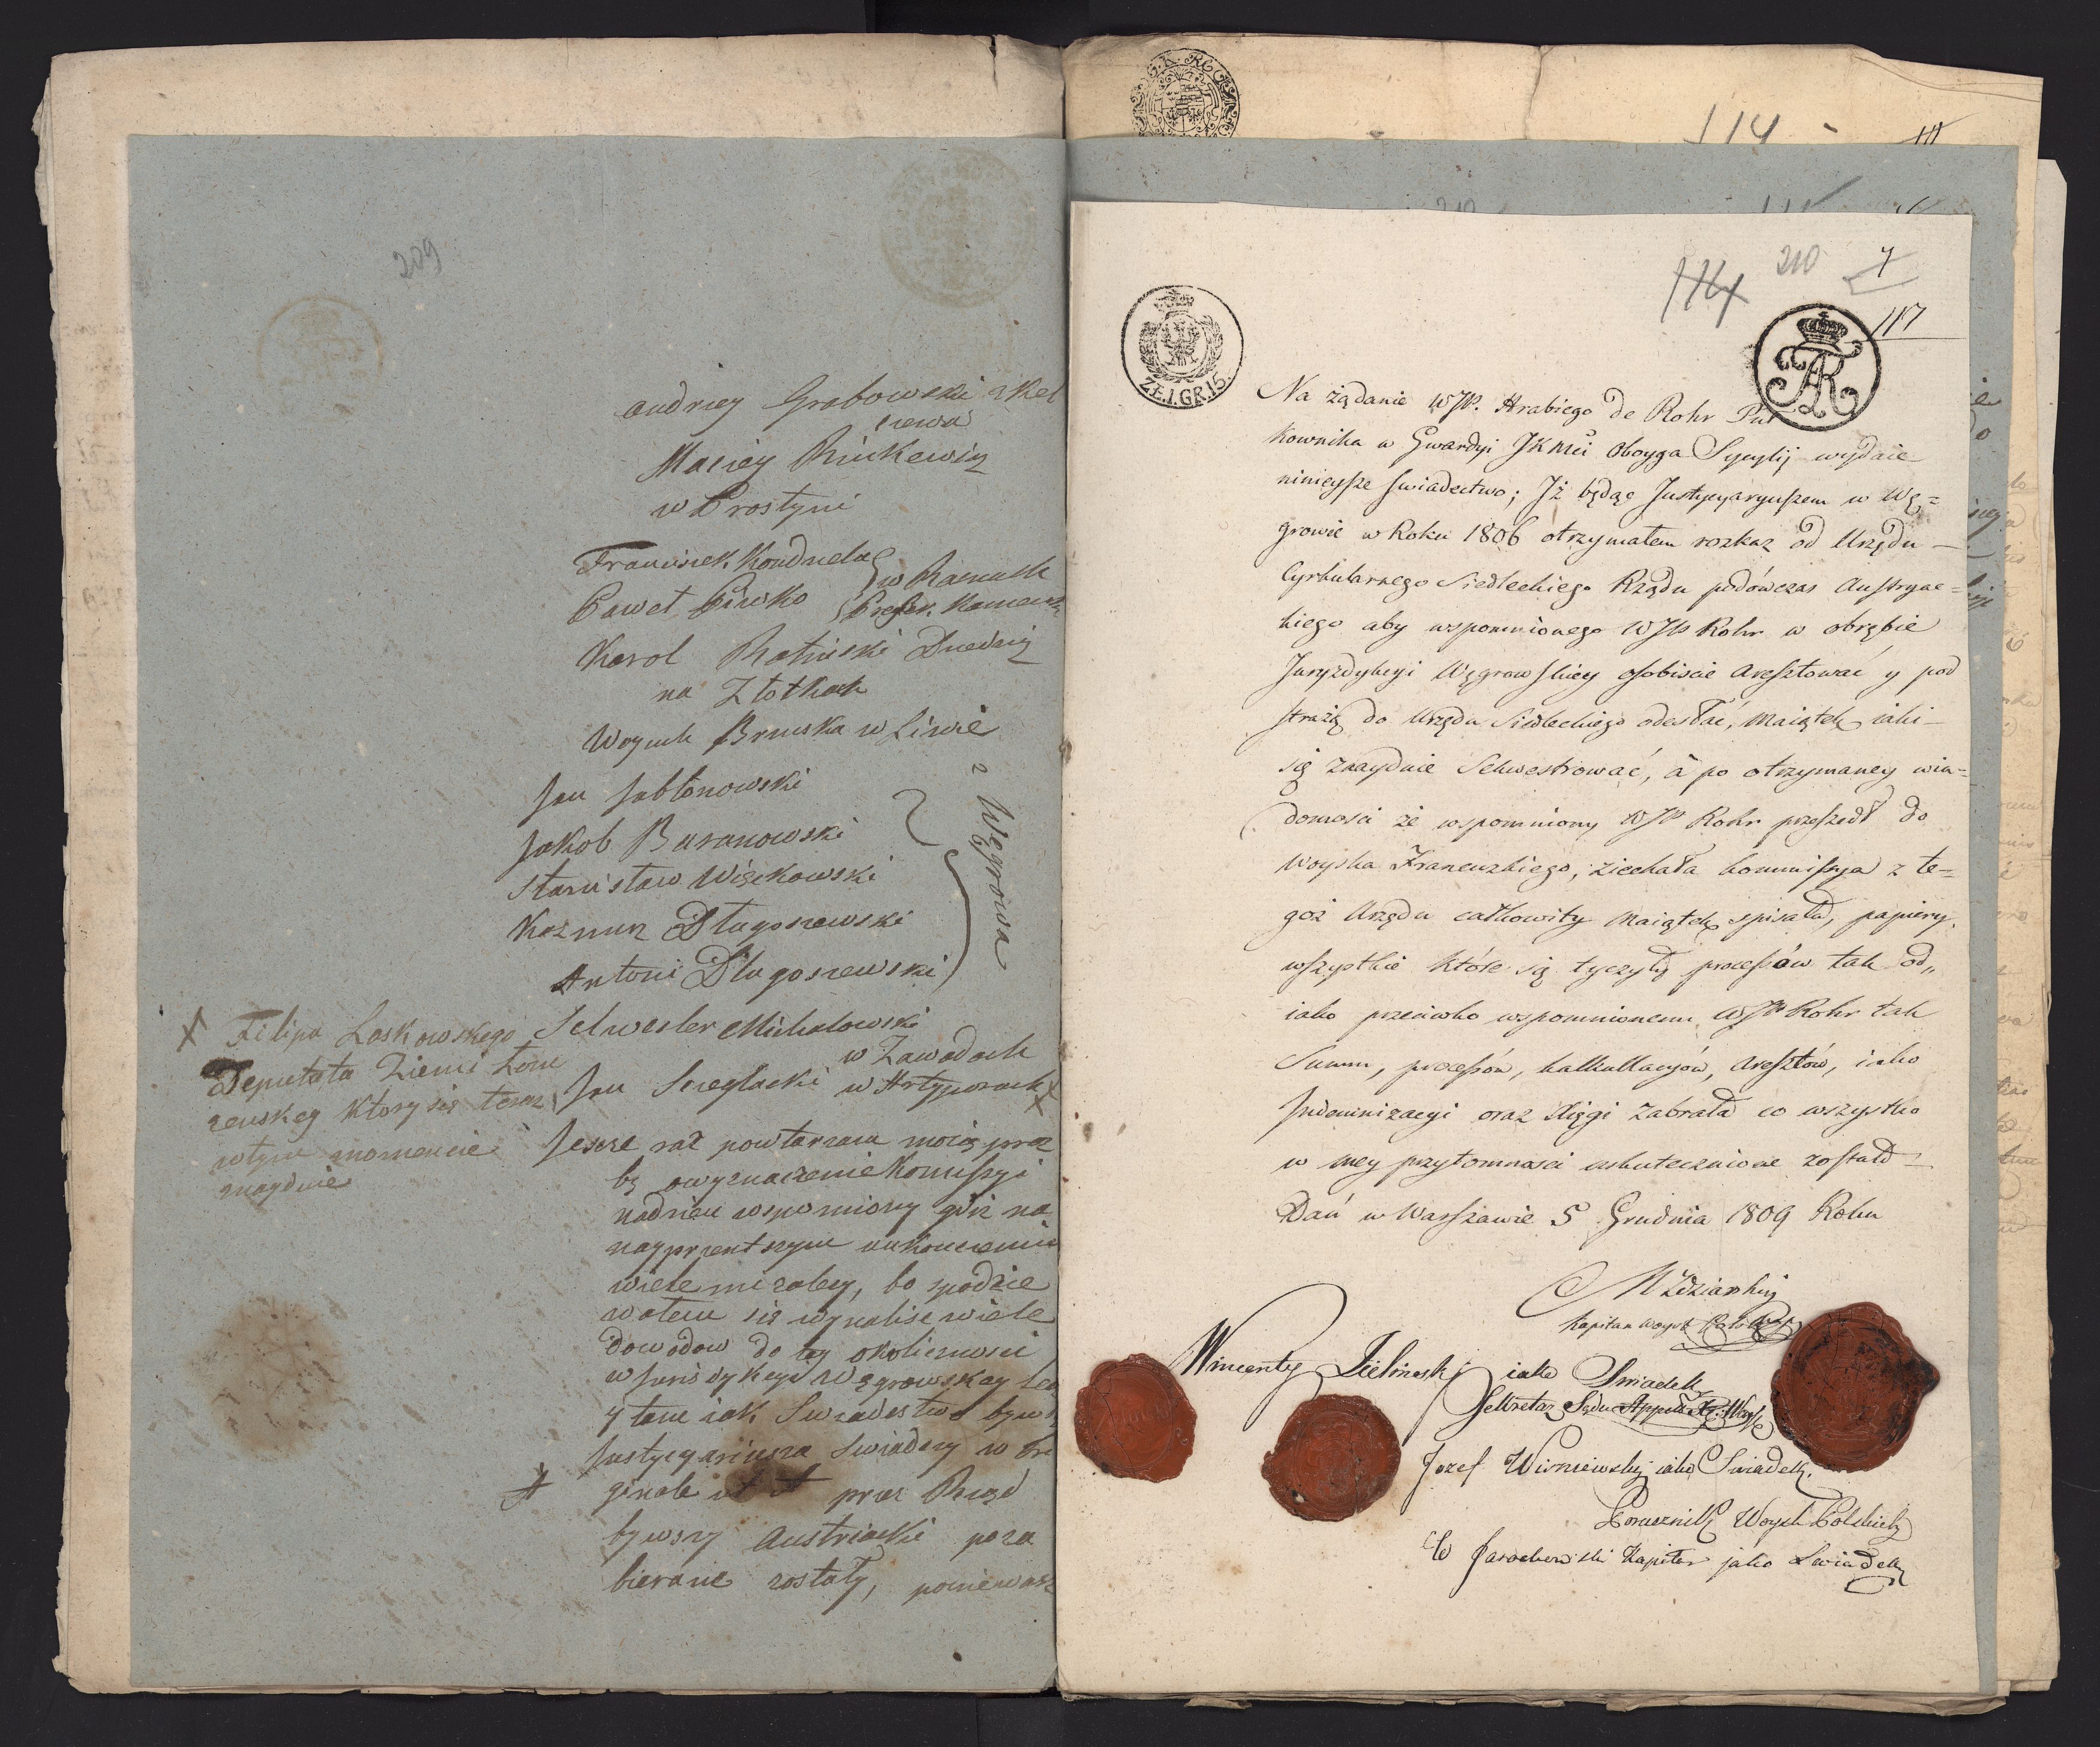 209
Andrzey Grabowski z Kel
czewa
Maciey Rinkewicz
w Prostyni
Franciszek Kondnela
Paweł Piwko
Karol Ratinski Dziedzic
na Zlotkach
Woyciech Bruszka w Liwie
Jan Jabłonowski
Jakob Baranowski
Stanisław Więckowski
Kazmirz Dlugoszewski
Antoni Dlugoszewski
z Węgrowa
Selwester Michalowski
w Zawadach
Jan Scieglacki w Artyzorach X
X Filipa Laskowskego
Deputata Ziemi Łom
zenskey ktory się teraz
wtym momencie
znayduie
Jescze raz powtarzam moię proz
bę owyznaczenie Komissyi
nadzien wspomniony gdiz na
nayprzentszym unkonczeniu
wiele mi zalezy, bo spodzie
wałem się wynalisc wiele
dowodow do tey okolicznosci
w Jurisdykcyi Węgrowskey
y tem iak Swiadestwo bywsz
Justycyariusza Swiadczy w Ori
ginale ut A przez Rząd
bywszy Austriacki poza
bierane zostały, poniewasz
114
210
117
ZŁ.1.GR.15.
Na żądanie WJP. Hrabiego de Rohr Puł
kownika w Gwardyi JKMci oboyga Sycylij wydaie
ninieysze swiadectwo; Jż będąc Justycyaryuszem w Wę=
growie w Roku 1806 otrzymałem rozkaz od Urzędu —
Cyrkularnego Siedleckiego Rządu podówczas Austryac=
kiego aby wspomnionego WJP Rohr w obrębie
Juryzdykcyi Węgrowskiey osobiscie aresztować y pod
strażą do Urzędu Siedleckiego odesłać, Maiątek iaki—
się znayduie Sekwestrować, à po otrzymaney wia=
domosci że wspomniony WJP Rohr przeszedł do
Woyska Francuzkiego, ziechała kommissya z te=
goż Urzędu całkowity maiątek spisała, papiery
wszystkie które się tyczyły processów tak od,,
iako przeciwko wspomnionemu WJP Rohr tak
Summ, processów, kalkulacyów, aresztów, iako
Indemnizacyi oraz Xięgi zabrała co wszystko
w mey przytomnosci uskutecznione zostało —
Dan w Warszawie 5 Grudnia 1809 Roku
M Zdziarski
Kapitan woysk Polskich
Wincenty Zielinski iako Swiadek
Sekretarz Sądu Appell:
Jozef Wisniewski iako Swiadek.
Porucznik Woysk Polskich
W Jarochowski Kapitan jako Swiadek